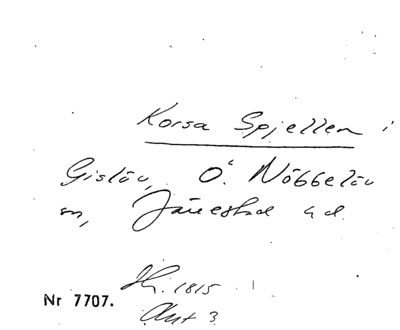 Korsa Spjellen i
Gislöv, Ö. Nöbbelöv
sn, Järrestad hd.
1815
Nr 7707.
3